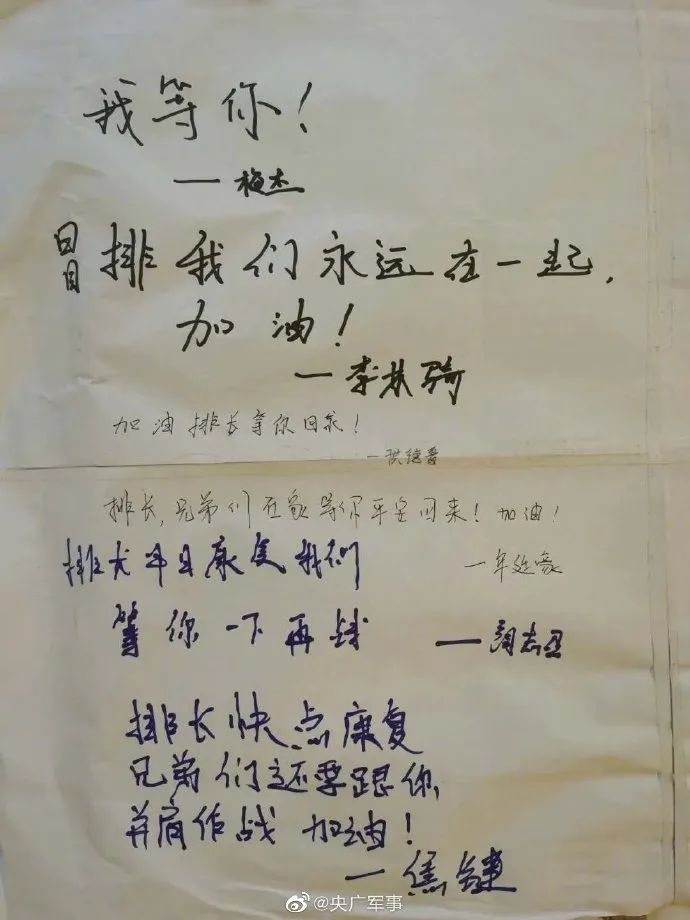 我等你！
—梅杰
冒排我们永远在一起，
加油！
—李
加油 排长等你回来！
排长，兄弟们在家等你平安回来！加油！
排长早日康复我们
等你一下再战
排长快点康复
兄弟们还要跟你
并肩作战 加油！
—焦键
@央广军事